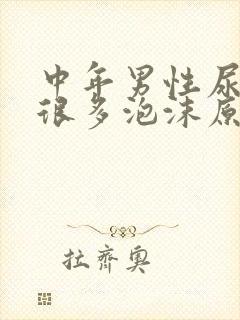 中年男性尿
很多泡沫原
拉齐奥